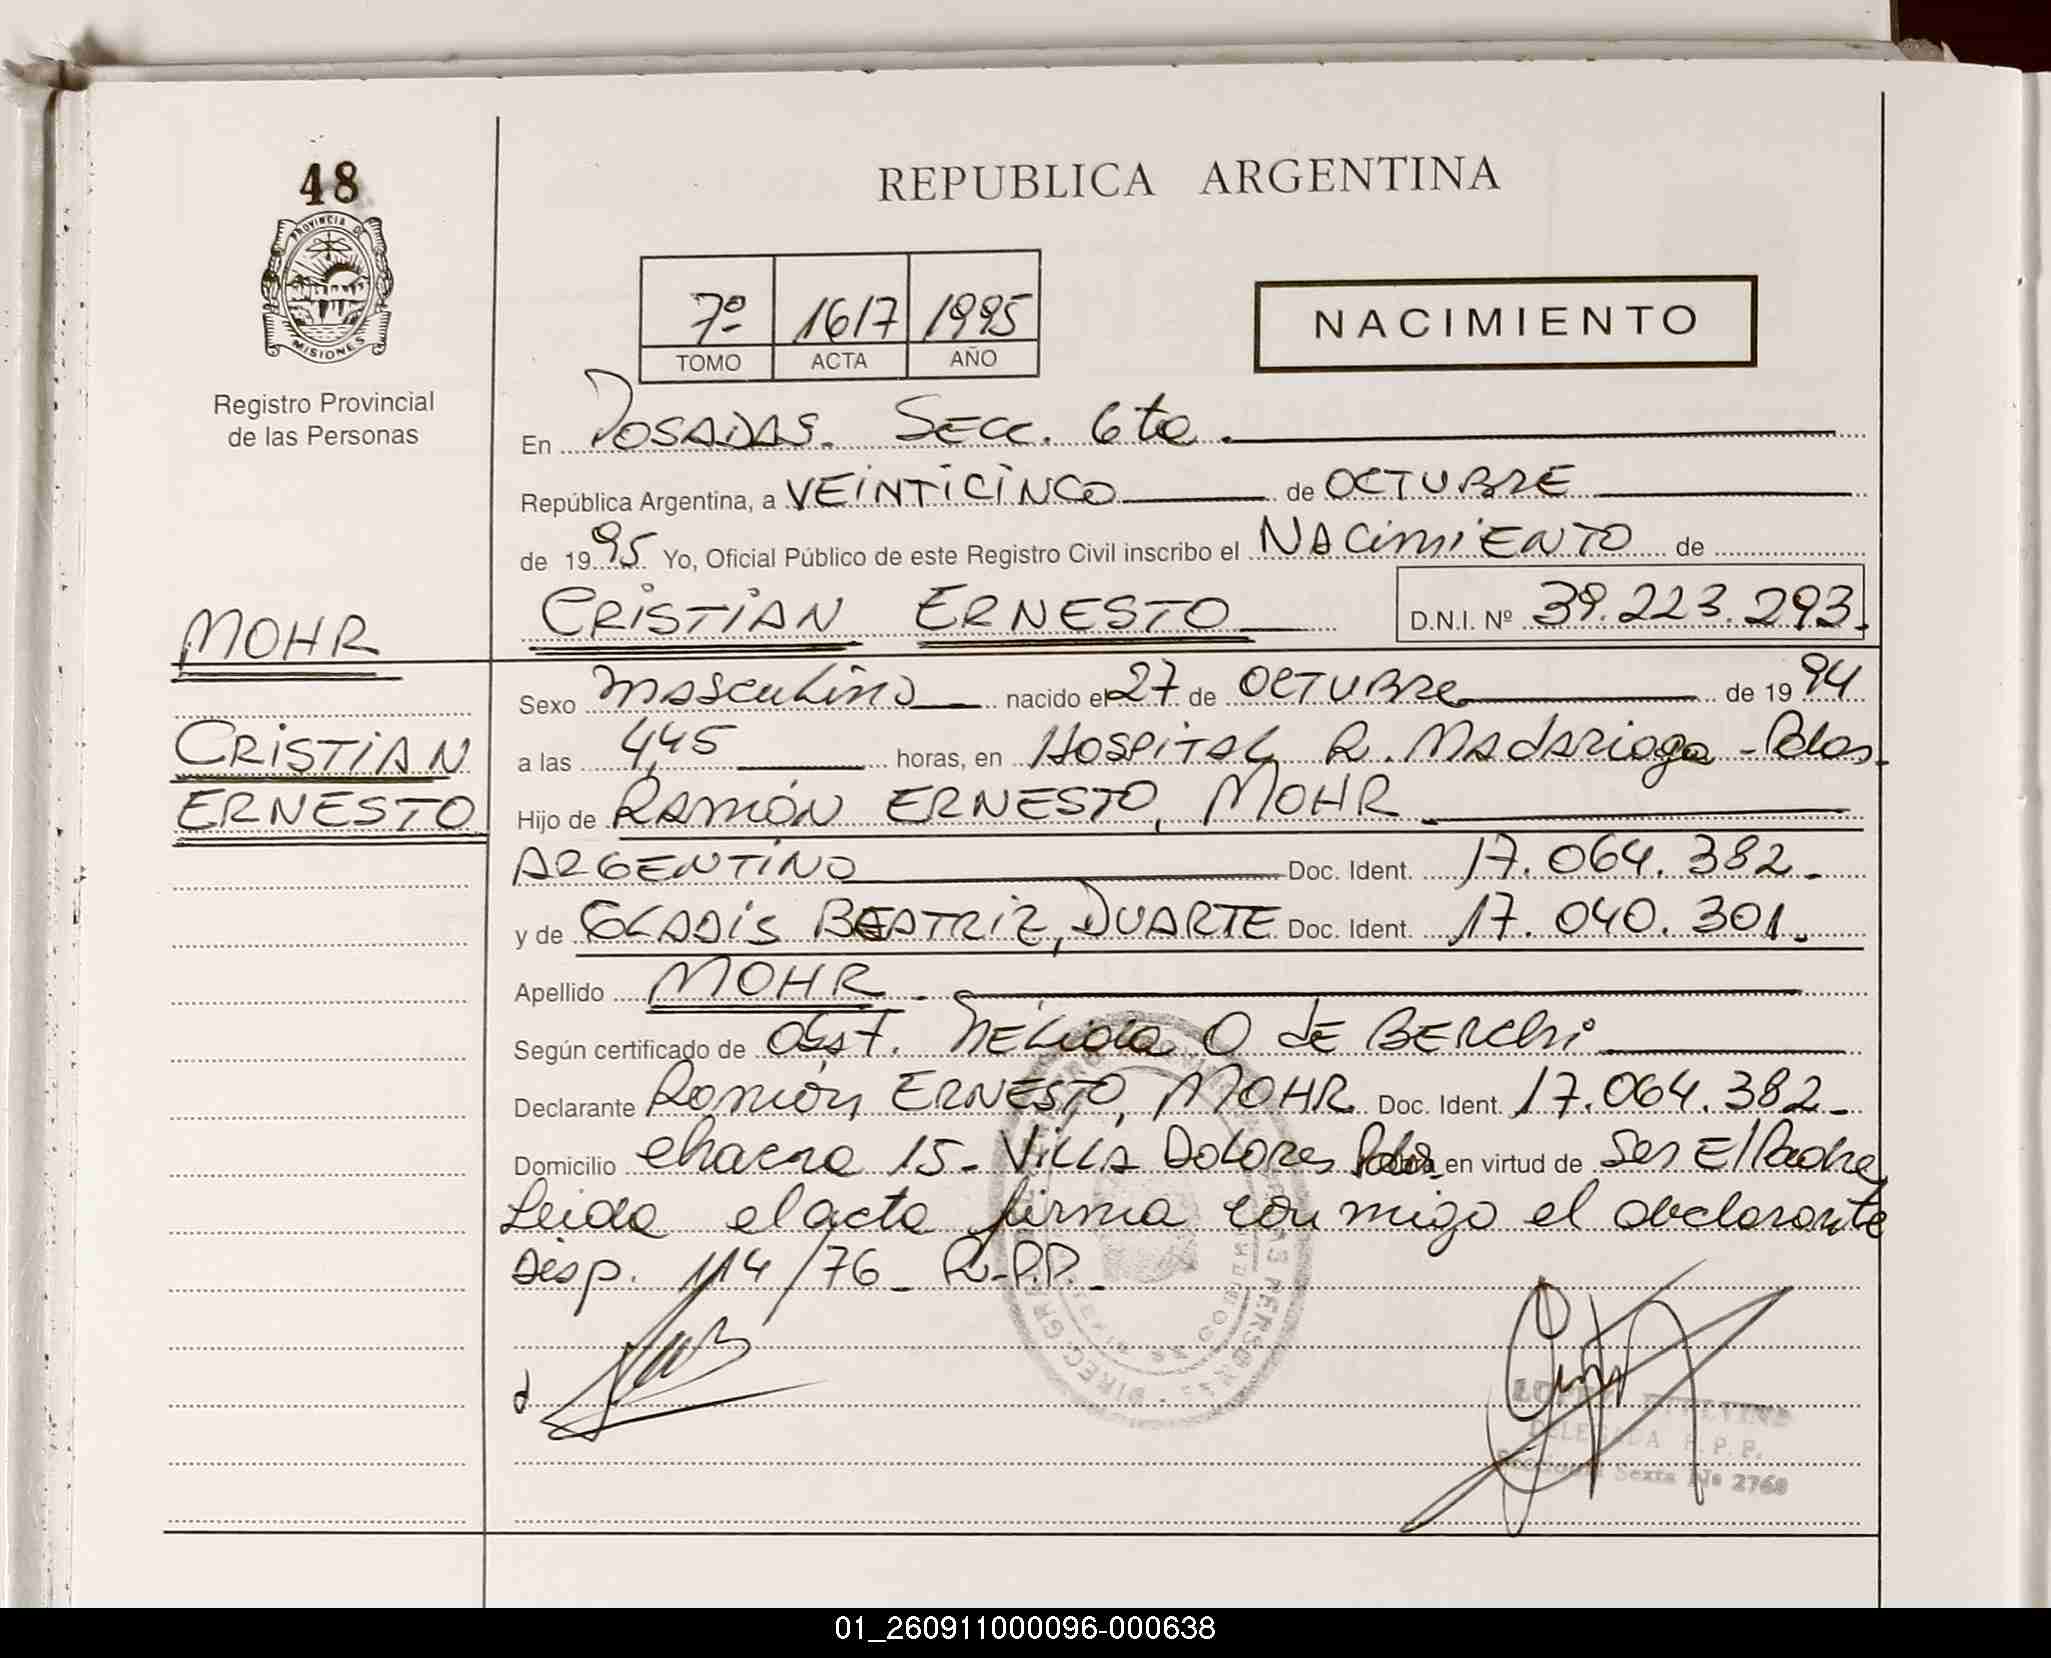 48
PROVINCIA DE
MISIONES
Registro Provincial
de las Personas
MOHR
CRISTIAN
ERNESTO
REPUBLICA ARGENTINA
7º 1617 1995
TOMO ACTA AÑO
NACIMIENTO
En POSADAS. SECC. 6ta.
República Argentina, a VEINTICINCO de OCTUBRE
de 1995 Yo, Oficial Público de este Registro Civil inscribo el NACIMIENTO de
CRISTIAN ERNESTO D.N.I. Nº 39.223.293.
Sexo Masculino nacido el 27 de OCTUBRE de 1994
a las 4,45 horas, en HOSPITAL R. Madariaga - Pdas.
Hijo de RAMÓN ERNESTO, MOHR
ARGENTINO Doc. Ident. 17.064.382.
y de GLADIS BEATRIZ, DUARTE Doc. Ident. 17.040.301.
Apellido MOHR.
Según certificado de Obst. NÉLida O de BERChi
Declarante Ramón ERNESTO, MOHR Doc. Ident. 17.064.382-
Domicilio chacra 15- Villa Dolores Pdas en virtud de Ser El Padre
Leida el acta firma conmigo el declarante
Disp. 114/76 - R.P.P.-
DELEGADA R. P. P.
Seccional Sexta No 2768
01_260911000096-000638